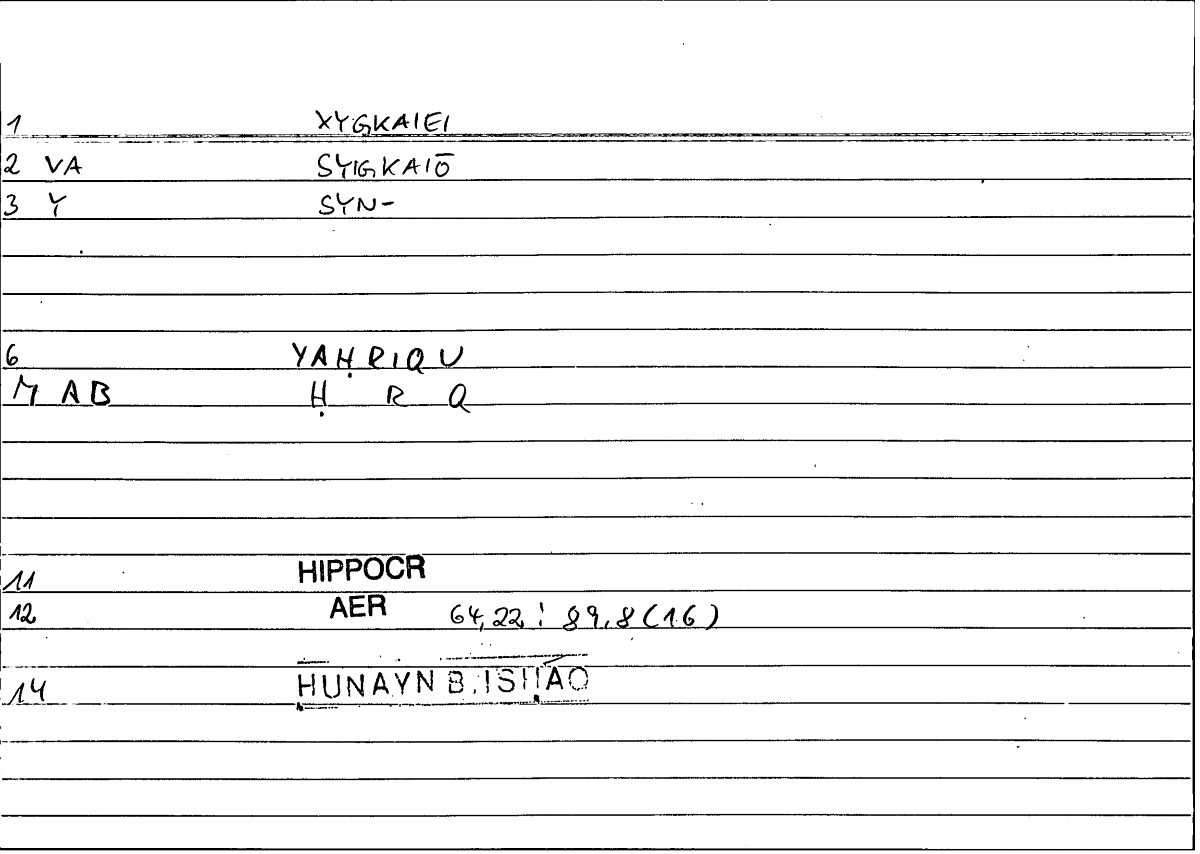 1 XYGKAIEI
2 VA SYGKAIŌ
3 Y SYN-
6 YAḤRIQU
M AB Ḥ R Q
11 HIPPOCR
12 AER 64,22 : 89,8 (16)
14 ḤUNAYN B. ISḤĀQ